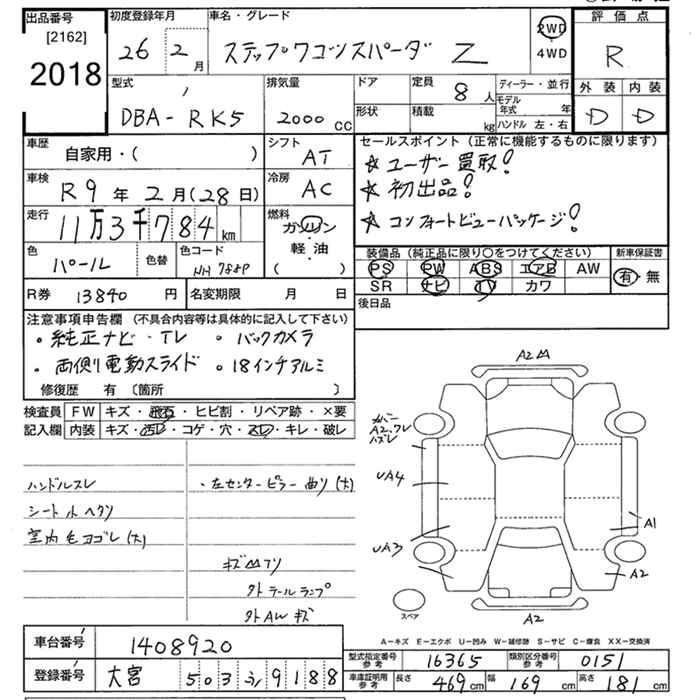 出品番号 初度登録年月 車名・グレード 評価点
[2162] 26年 2月 ステップワゴンスパーダ Z 2WD・4WD R
2018
型式 排気量 ドア 定員 8人 ディーラー・並行 外装 内装
DBA-RK5 2000cc 形状 積載 kg モデル年式 年 D D
ハンドル左・右
車歴 自家用・( ) シフト AT セールスポイント(正常に機能するものに限ります)
☆ユーザー買取!
車検 R9年2月(28日) 冷房 AC ☆初出品!
走行 11万3千784km 燃料 ガソリン・軽油( ) ☆コンフォートビューパッケージ!
色 パール 色替 色コード NH788P 装備品(純正品に限り○をつけてください) 新車保証書
PS PW ABS エアB AW 有・無
R券 13840円 名変期限 月 日 SR ナビ TV カワ
後日品
注意事項申告欄(不具合内容等は具体的に記入して下さい)
・純正ナビ・TV ・バックカメラ
・両側電動スライド ・18インチアルミ
修復歴 有(箇所 )
検査員記入欄 FW キズ・飛石・ヒビ割・リペア跡・×要
内装 キズ・汚レ・コゲ・穴・スレ・キレ・破レ
ハンドルスレ ・左センターピラー曲り(大)
シートルヘタリ
室内毛ヨゴレ(大)
キズ凹アリ
外テールランプ
外AWキズ
A2凹
カバー
A2,ワレ
ハズレ
UA4
A1
UA3
A2
スペア
A2
A-キズ E-エクボ U-凹み W-補修跡 S-サビ C-腐食 XX-交換済
車台番号 1408920 型式指定番号 参考 16365 類別区分番号 参考 0151
登録番号 大宮 503 9188 車庫証明用 参考 長さ 469cm 幅 169cm 高さ 181cm